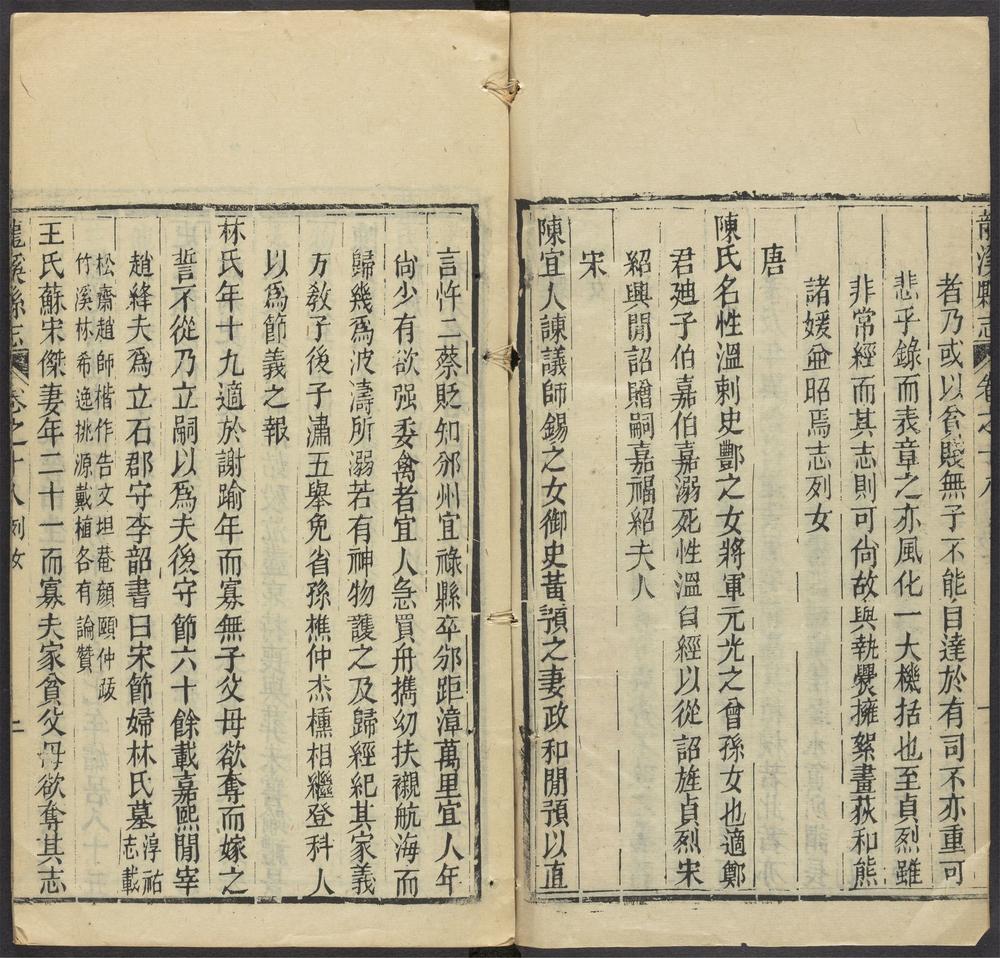 龍溪縣志 卷之十八 一
者乃或以貧賤無子不能自達於有司不亦重可
悲乎錄而表章之亦風化一大機括也至貞烈雖
非常經而其志則可尙故與執㸑擁絮畫荻和熊
諸媛並昭焉志列女
唐
陳氏名性溫刺史酆之女將軍元光之曾孫女也適鄭
君廸子伯嘉伯嘉溺死性溫自經以從詔旌貞烈宋
紹興閒詔贈嗣嘉福紹夫人
宋
陳宜人諫議師錫之女御史黃預之妻政和閒預以直
言忤二蔡貶知邠州宜祿縣卒邠距漳萬里宜人年
尙少有欲强委禽者宜人急買舟擕幼扶襯航海而
歸幾爲波濤所溺若有神物護之及歸經紀其家義
方敎子後子潚五舉免省孫樵仲杰櫄相繼登科人
以爲節義之報
林氏年十九適於謝踰年而寡無子父母欲奪而嫁之
誓不從乃立嗣以爲夫後守節六十餘載嘉熙閒宰
趙絳夫爲立石郡守李韶書曰宋節婦林氏墓淳祐志載
松齋趙師楷作告文坦菴顏頤仲跋
竹溪林希逸桃源戴植各有論贊
王氏蘇宋傑妻年二十一而寡夫家貧父母欲奪其志
龍溪縣志 卷之十八 列女 二